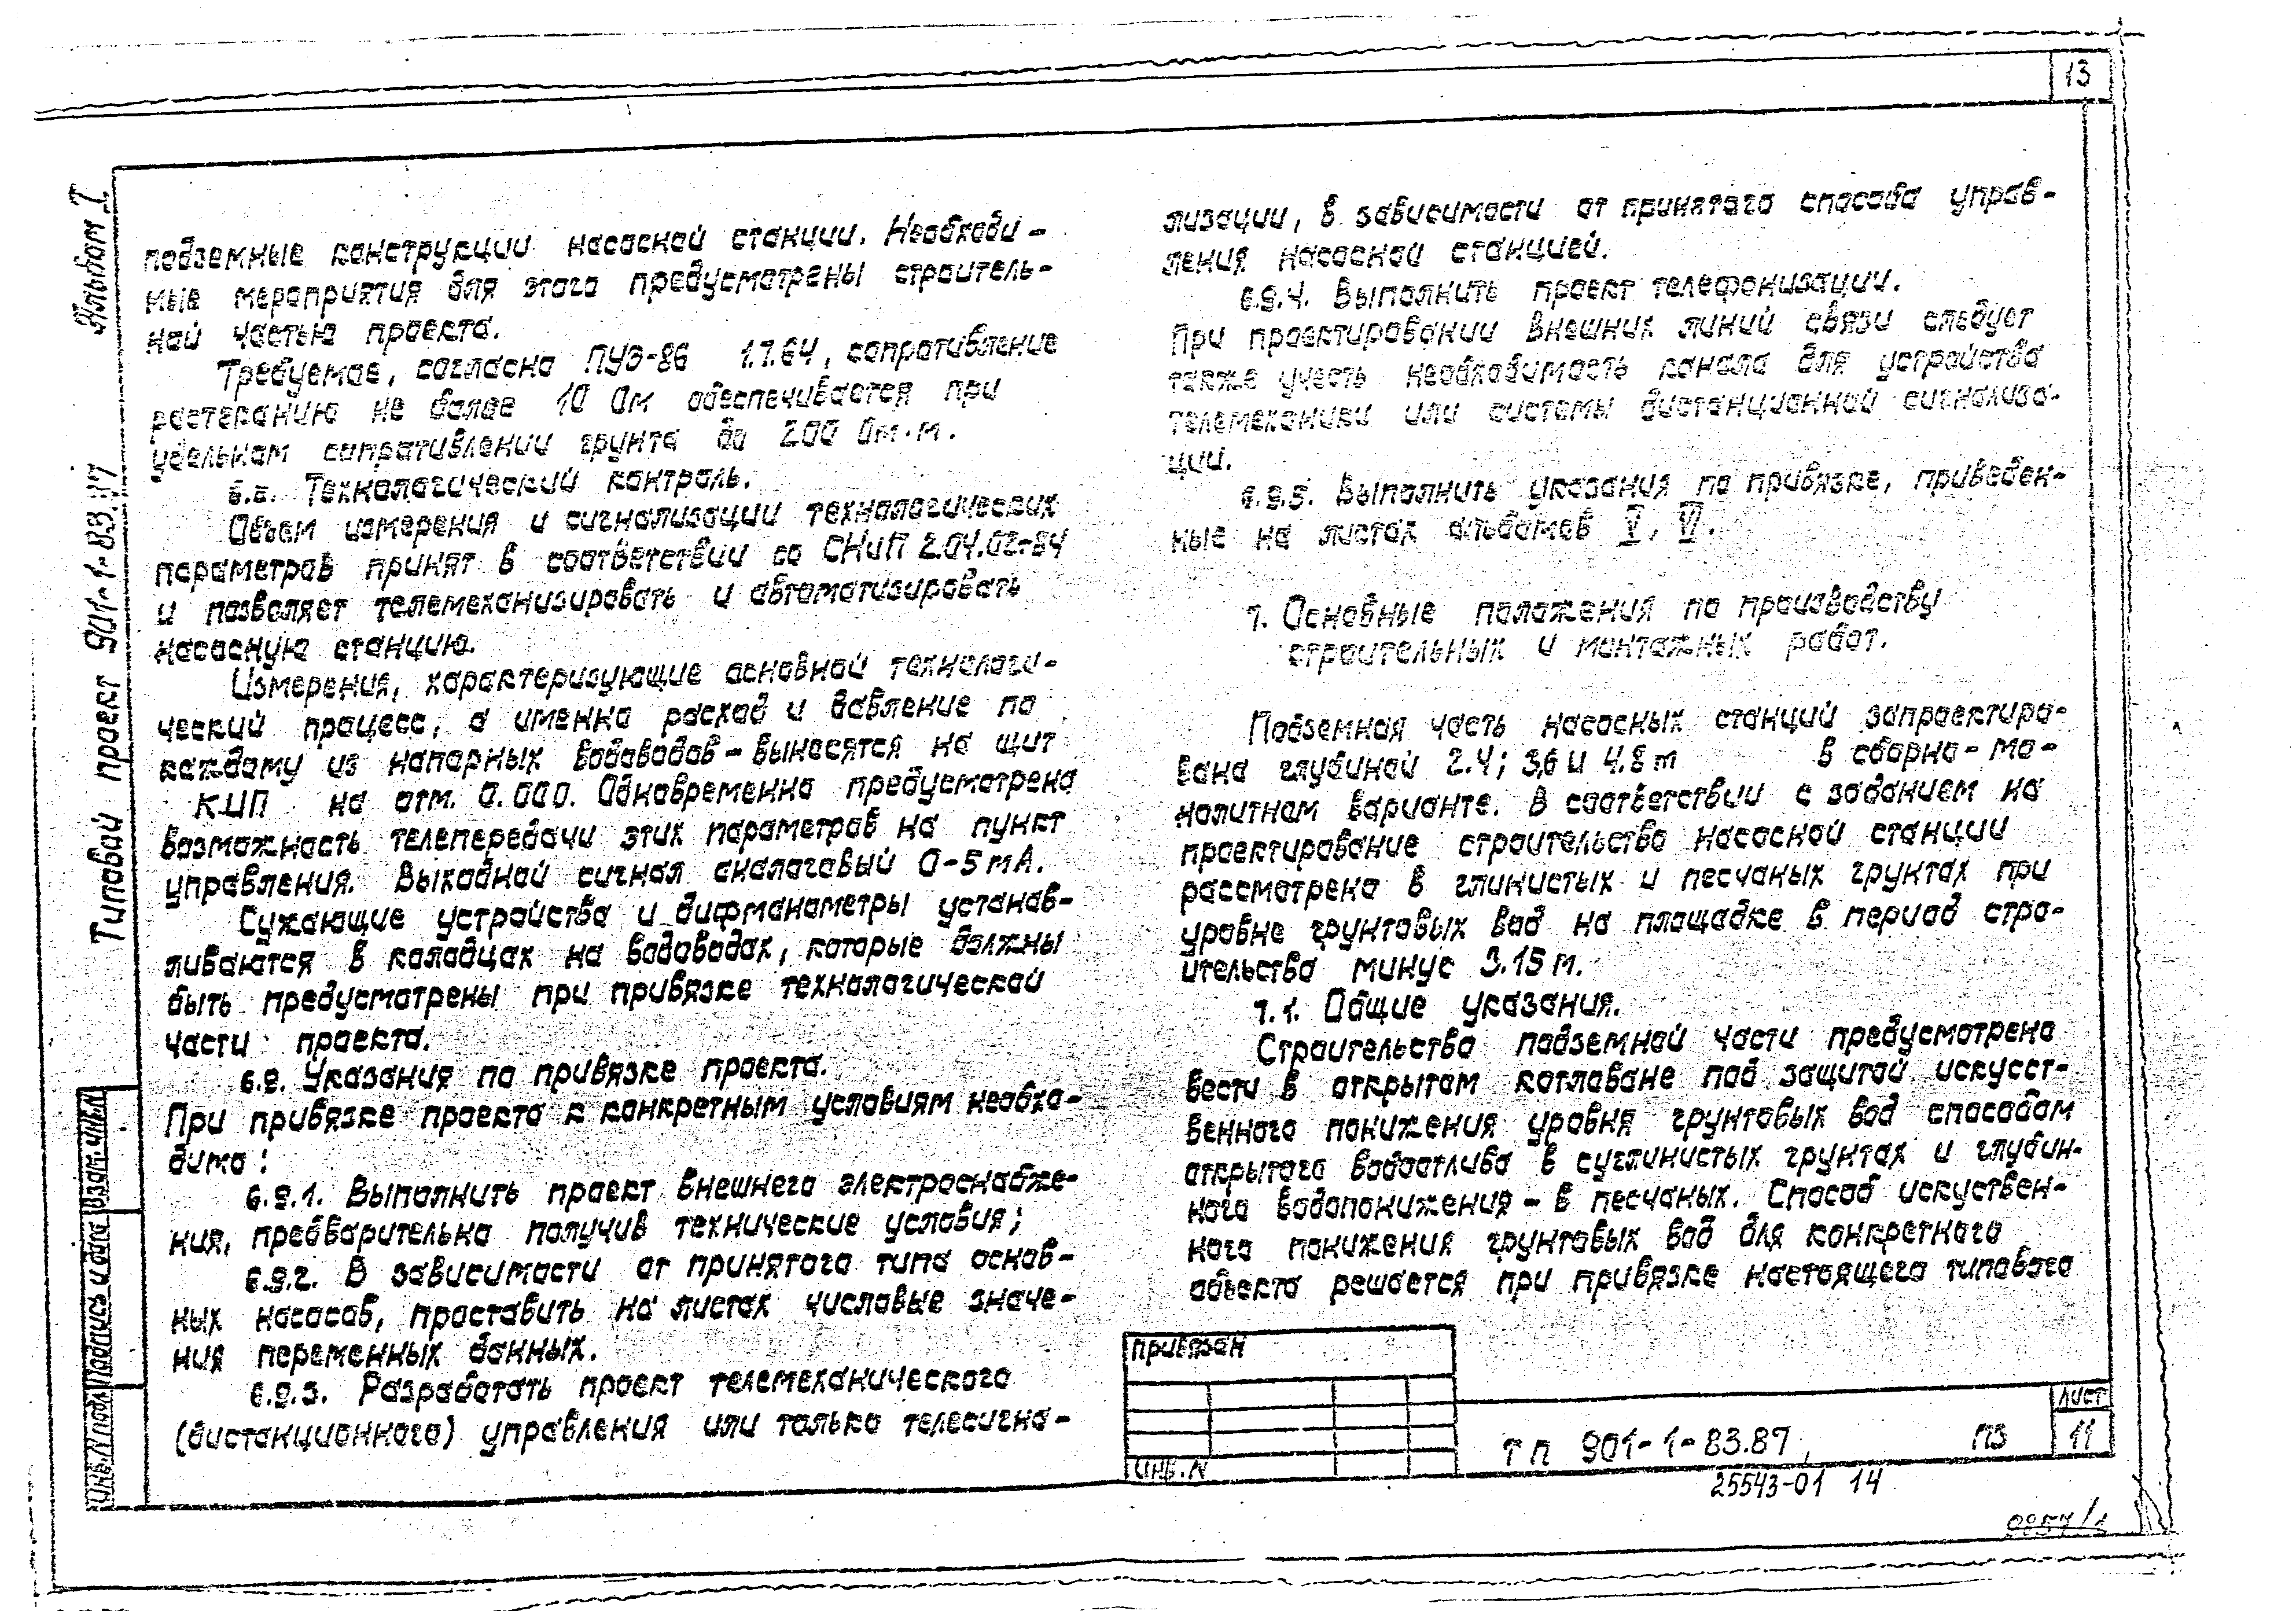 13
Альбом I
Типовой проект 901-1-83.87
подземные конструкции насосной станции. Необходи-
мые мероприятия для этого предусмотрены строитель-
ной частью проекта.
Требуемое, согласно ПУЭ-86 1.7.64, сопротивление
растеканию не более 10 Ом обеспечивается при
удельном сопротивлении грунта до 200 Ом·м.
6.8. Технологический контроль.
Объем измерения и сигнализации технологических
параметров принят в соответствии со СНиП 2.04.02-84
и позволяет телемеханизировать и автоматизировать
насосную станцию.
Измерения, характеризующие основной технологи-
ческий процесс, а именно расход и давление по
каждому из напорных водоводов - выносятся на щит
КИП на отм. 0.000. Одновременно предусмотрена
возможность телепередачи этих параметров на пункт
управления. Выходной сигнал аналоговый 0-5 mA.
Сужающие устройства и дифманометры устанав-
ливаются в колодцах на водоводах, которые должны
быть предусмотрены при привязке технологической
части проекта.
6.9. Указания по привязке проекта.
При привязке проекта к конкретным условиям необхо-
димо:
6.9.1. Выполнить проект внешнего электроснабже-
ния, предварительно получив технические условия;
6.9.2. В зависимости от принятого типа основ-
ных насосов, проставить на листах числовые значе-
ния переменных данных.
6.9.3. Разработать проект телемеханического
(дистанционного) управления или только телесигна-
лизации, в зависимости от принятого способа управ-
ления насосной станцией.
6.9.4. Выполнить проект телефонизации.
При проектировании внешних линий связи следует
также учесть необходимость канала для устройства
телемеханики или системы дистанционной сигнализа-
ции.
6.9.5. Выполнить указания по привязке, приведен-
ные на листах альбомов V, VI.
7. Основные положения по производству
строительных и монтажных работ.
Подземная часть насосных станций запроектиро-
вана глубиной 2.4; 3,6 и 4.8 m в сборно-мо-
нолитном варианте. В соответствии с заданием на
проектирование строительство насосной станции
рассмотрено в глинистых и песчаных грунтах при
уровне грунтовых вод на площадке в период стро-
ительства минус 3.15 м.
7.1. Общие указания.
Строительство подземной части предусмотрено
вести в открытом котловане под защитой искусст-
венного понижения уровня грунтовых вод способом
открытого водоотлива в суглинистых грунтах и глубин-
ного водопонижения - в песчаных. Способ искуствен-
ного понижения грунтовых вод для конкретного
объекта решается при привязке настоящего типового
Привязан
Инв. N
ТП 901-1-83.87
ПЗ
Лист
11
25543-01 14
Инв. N подл.
Подпись и дата
Взам. инв. N